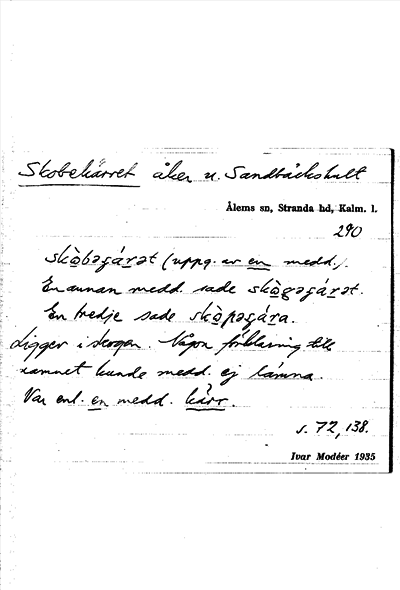 Skobekärret åker u. Sandbäckshult
Ålems sn, Stranda hd, Kalm. l.
290
skò̱bəʒár̲ət (uppg. av en medd.).
En annan medd sade skò̱gəʒár̲ət.
En tredje sade skò̱pəʒára.
Ligger i skogen. Någon förklaring till
namnet kunde medd. ej lämna.
Var enl. en medd. kärr.
s. 72, 138.
Ivar Modéer 1935